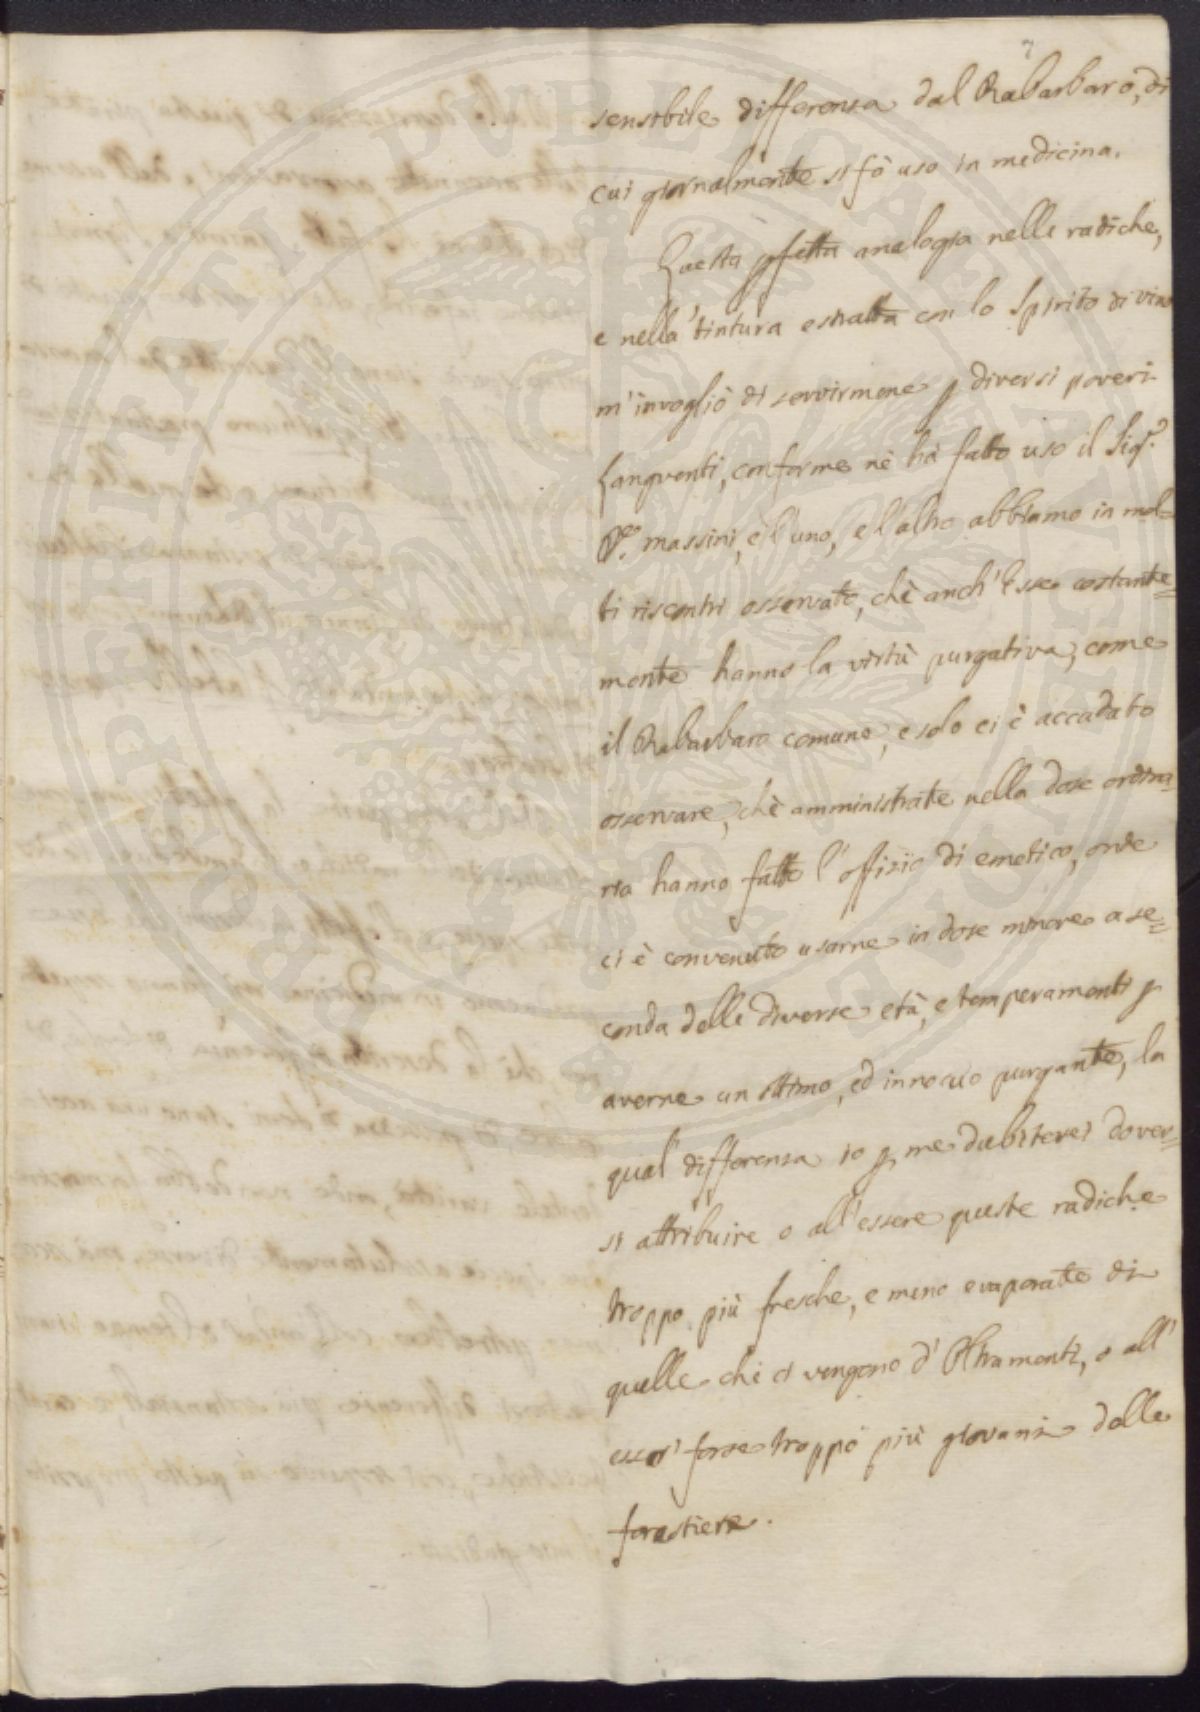 7
sensibile differenza dal Rabarbaro, di
cui giornalmente si fà uso in medicina.
Questa pfetta analogia nelle radiche,
e nella tintura estratta con lo Spirito di vino
m'invogliò di servirmene p diversi poveri
Languenti, conforme nè hà fatto uso il Sig.r
Massini, e l'uno, e l'altro abbiamo in mol=
ti riscontri osservato, chè anch'Esse costante=
mente hanno la virtù purgativa, come
il Rabarbaro comune, e solo ci è accadato
osservare, chè amministrate nella dose ordina
ria hanno fatto l'offizio di emetico, onde
ci è convenuto usarne in dose minore a se=
conda delle diverse età, e temperamenti p
averne un ottimo, ed innocuo purgante, la
qual differenza io p me dubiterei dover=
si attribuire o all'essere queste radiche
troppo più fresche, e meno evaporate di
quelle che ci vengono d'Oltramonti, o all'
esser forse troppo più giovani delle
forastiere.
PVBLICAE VTILITATI PROSPERITATI